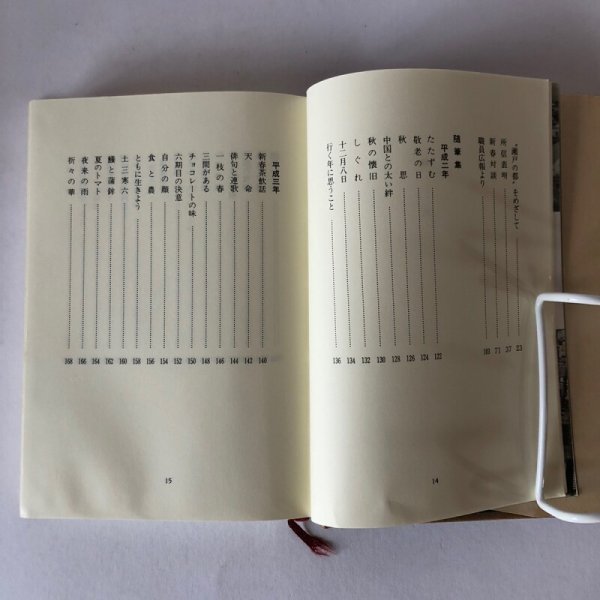 “瀬戸の都”をめざして 23
所信表明 37
新春対談 71
職員広報より 103
随筆集
平成二年
たたずむ 122
敬老の日 124
秋思 126
中国との太い絆 128
秋の懐旧 130
しぐれ 132
十二月八日 134
行く年に思うこと 136
14
平成三年
新春茶飲話 140
天命 142
俳句と連歌 144
一枝の春 146
三間がある 148
チョコレートの味 150
六期目の決意 152
自分の顔 154
食と農 156
ともに生きよう 158
土三寒六 160
鰻と蒲鉾 162
夏のトマト 164
夜来の雨 166
折々の華 168
15